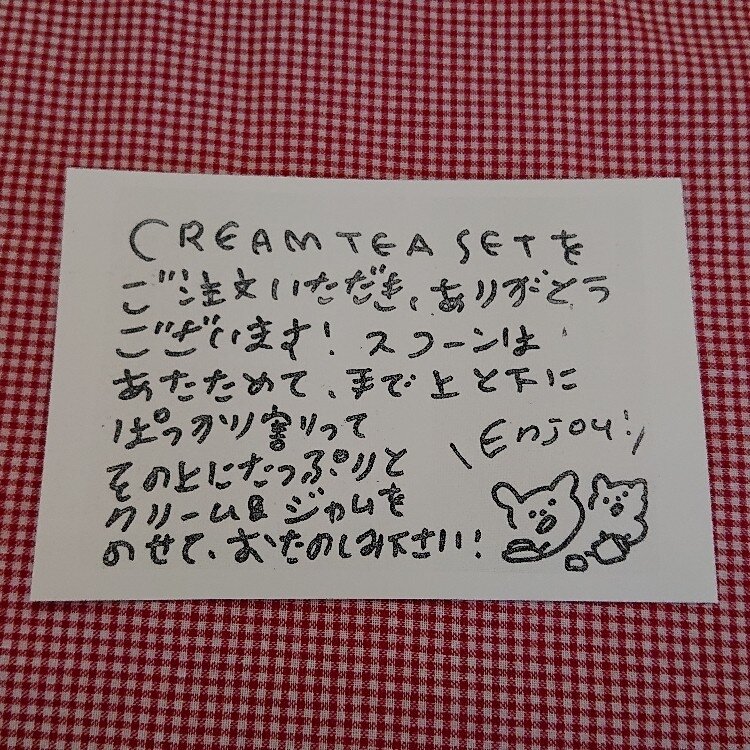 CREAM TEA SETを
ご注文いただき、ありがとう
ございます! スコーンは
あたためて、手で上と下に
ぱっかり割って
その上にたっぷりと
クリーム&ジャムを
のせて、おたのしみ下さい!
\Enjoy!/